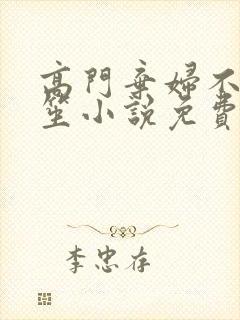 高門棄婦不
笙小說免費
李忠存